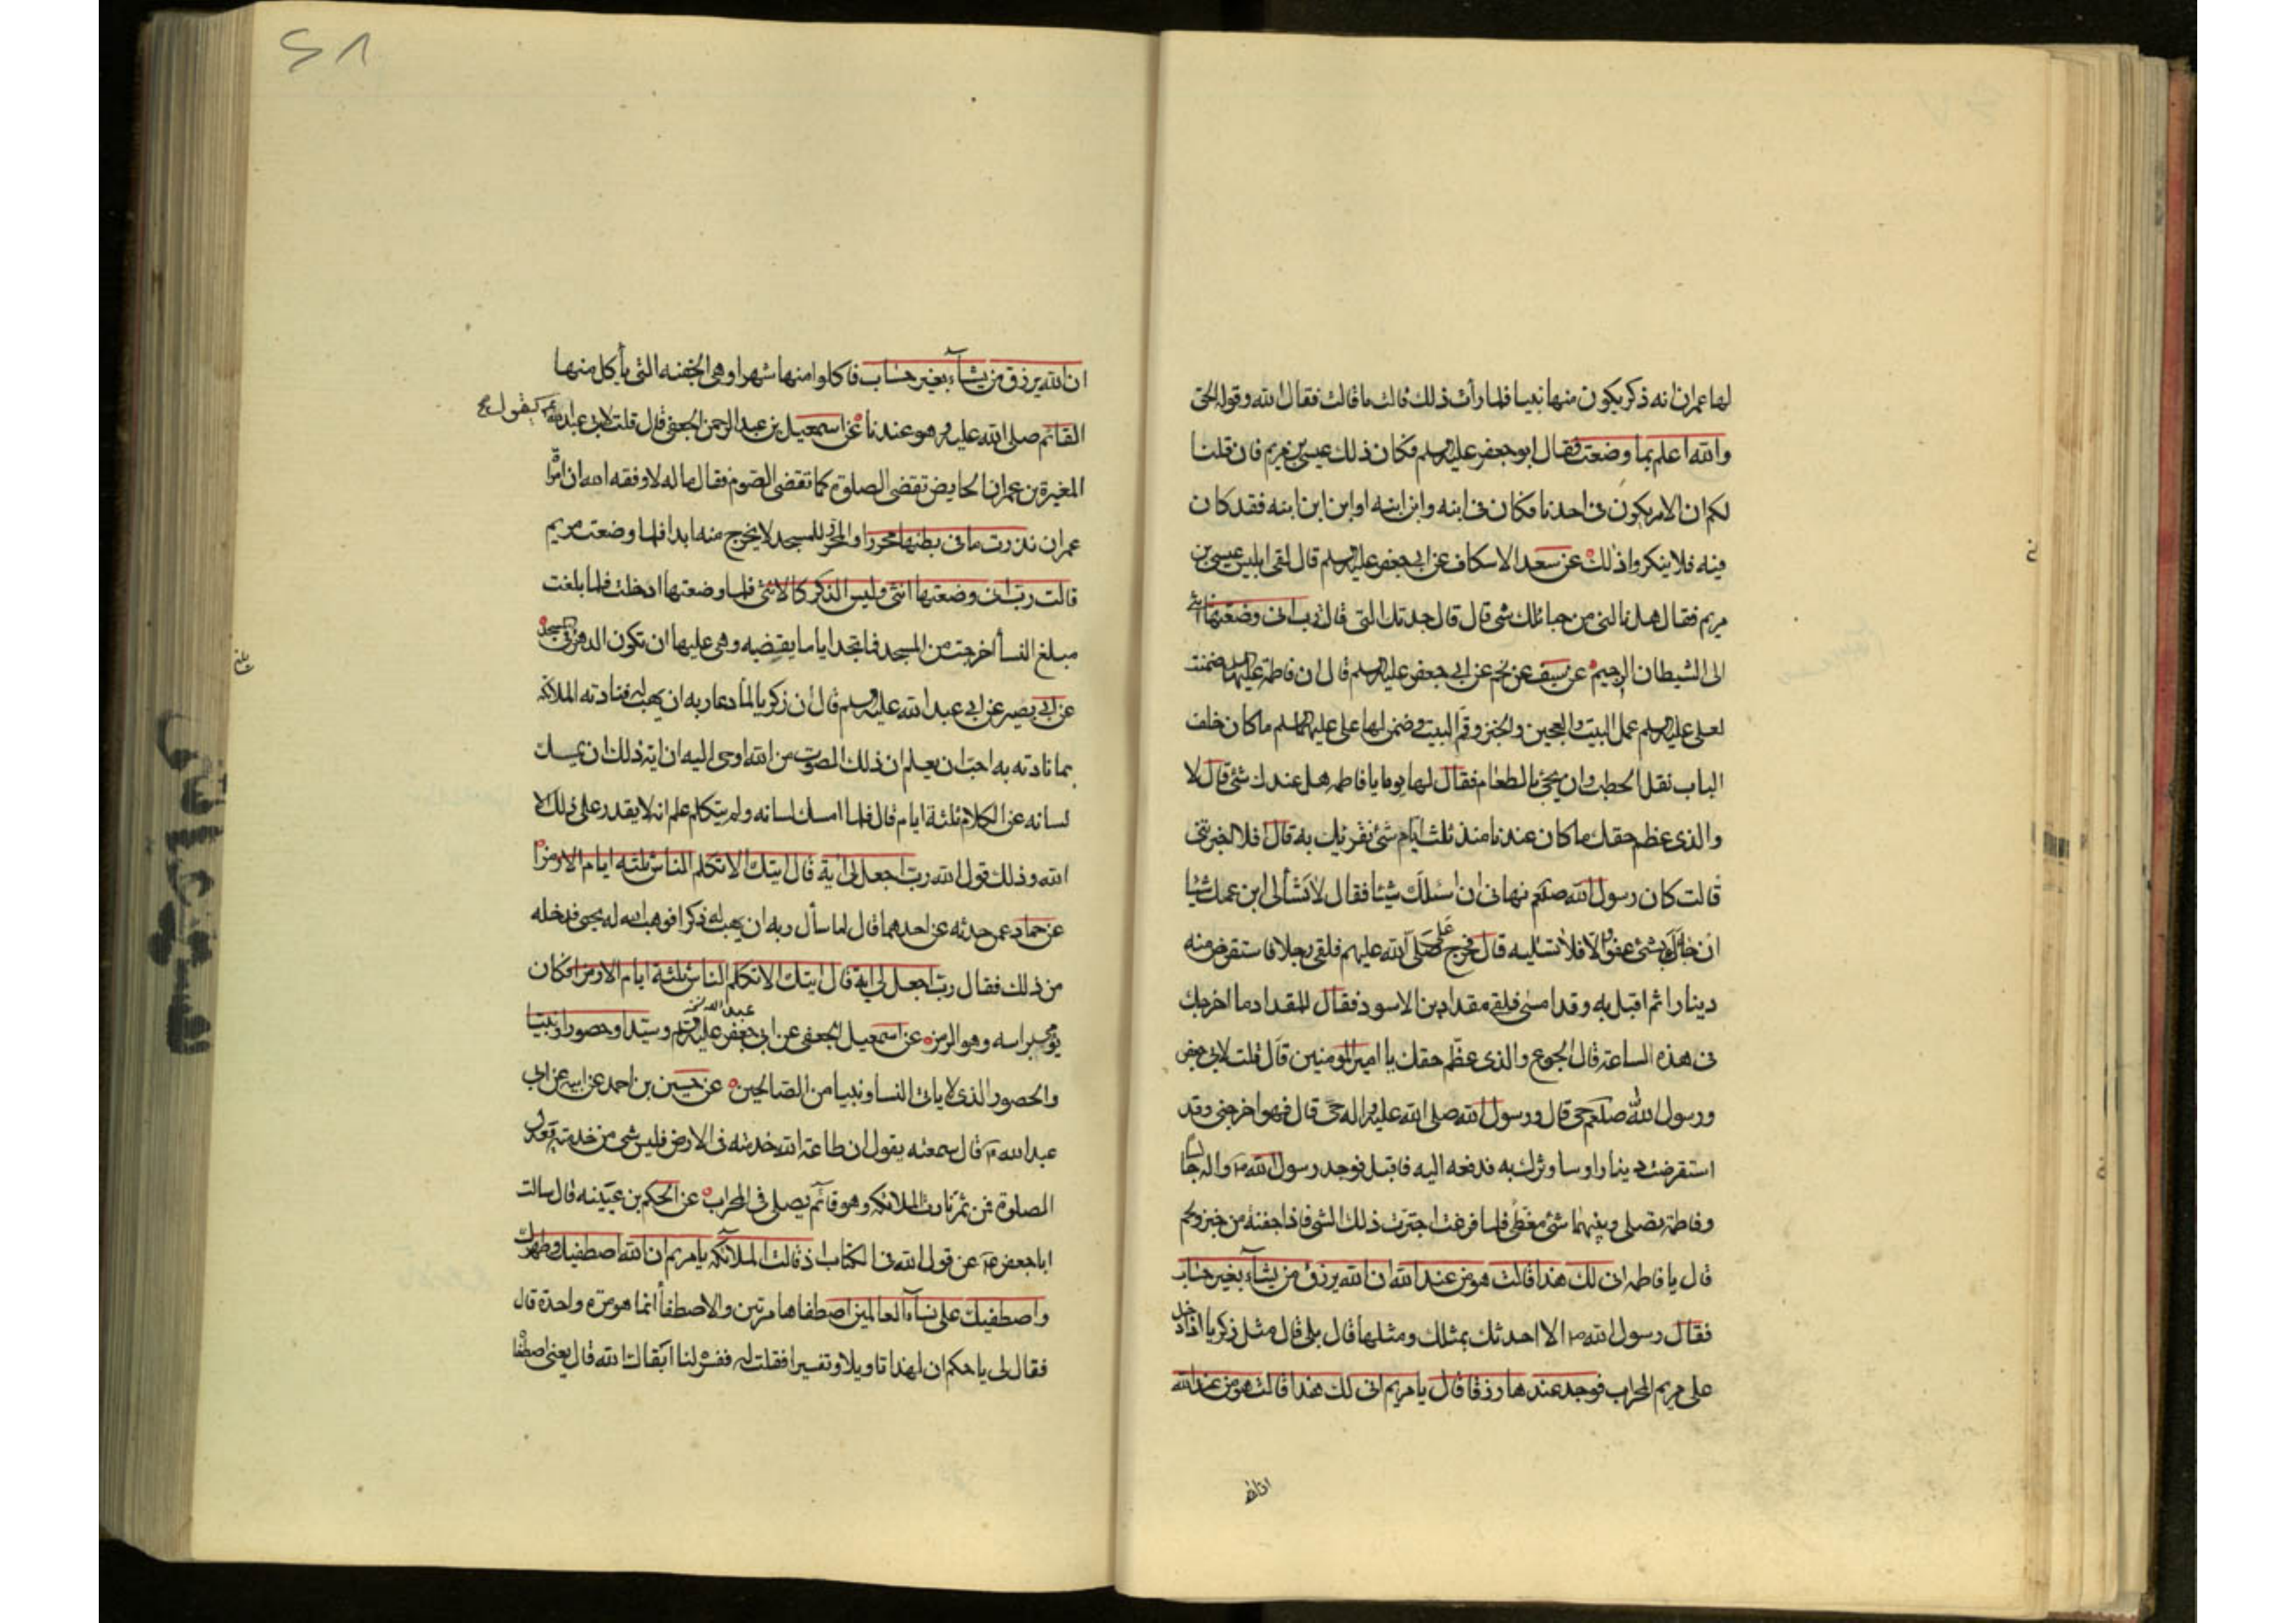 لها عمران انه ذكر يكون منها نبيا فلما رأت ذلك قالت ما قالت فقال الله وقوله الحق
والله اعلم بما وضعت فقال ابو جعفر عليه السلم فكان ذلك عيسى بن مريم فان قلنا
لكم ان الامر يكون فى احدنا فكان فى ابنه وابن ابنه او ابن ابن ابنه فقد كان
فيه فلا ينكروا ذلك عن سعد الاسكاف عن ابى جعفر عليه السلم قال لقى ابليس عيسى بن
مريم فقال هل نالنى من حبائلك شئ قال قال جدتك التى قال رب انى وضعتها انثى
الى الشيطان الرجيم عن سيف عن نجم عن ابى جعفر عليه السلم قال ان فاطمة عليها السلم ضمنت
لعلى عليه السلم عمل البيت والعجين والخبز وقم البيت وضمن لها على عليه السلم ما كان خلف
الباب نقل الحطب وان يجئ بالطعام فقال لها يوما يا فاطمه هل عندك شئ قال لا
والذى عظم حقك ما كان عندنا منذ ثلث ايام شئ نقريك به قال افلا اخبرتنى
قالت كان رسول الله صلعم نهانى ان اسئلك شيئا فقال لا تسألى ابن عمك شيئا
ان جاءك بشئ عفو والا فلا تسئليه قال فخرج على صلى الله عليهم فلقى رجلا فاستقرض منه
دينارا ثم اقبل به وقد امسى فلقى مقداد بن الاسود فقال للمقداد ما اخرجك
فى هذه الساعة قال الجوع والذى عظم حقك يا امير المومنين قال قلت لابى جعفر
ورسول الله صلعم حى قال ورسول الله صلى الله عليه واله حى قال فهو اخرجنى وقد
استقرضت دينارا وساوثرك به فدفعه اليه فاقبل فوجد رسول الله ص واله جالسا
وفاطمة تصلى وبينهما شئ مغطى فلما فرغت اجترت ذلك الشئ فاذا جفنة من خبز ولحم
قال يا فاطمه انى لك هذا قالت هو من عند الله ان الله يرزق من يشاء بغير حساب
فقال رسول الله ص الا احدثك بمثلك ومثلها قال بلى قال مثل زكريا اذا دخل
على مريم المحراب فوجد عندها رزقا قال يا مريم انى لك هذا قالت هو من عند الله
ان الله
ان الله يرزق من يشاء بغير حساب فاكلوا منها شهرا وهى الجفنه التى يأكل منها
القائم صلى الله عليه وهو عندنا عن اسمعيل بن عبد الرحمن الجعفى قال قلت لابى عبد الله ع
المغيرة بن عمران الحايض تقضى الصلوة كما تقضى الصوم فقال ما له لا وفقه الله ان امرأة
عمران نذرت ما فى بطنها محررا والمحرر للمسجد لا يخرج منه ابدا فلما وضعت مريم
قالت رب انى وضعتها انثى وليس الذكر كالانثى فلما وضعتها ادخلت فلما بلغت
مبلغ النسأ اخرجت من المسجد فما تجد اياما يقضيه وهى عليها ان تكون الدهر فى المسجد
عن ابى بصير عن ابى عبد الله عليه السلم قال ان زكريا لما دعا ربه ان يهب له فنادته الملائكه
بما نادته به احب ان يعلم ان ذلك الصوت من الله اوحى اليه ان اية ذلك ان يمسك
لسانه عن الكلام ثلثة ايام قال فلما امسك لسانه ولم يتكلم علم انه لا يقدر على ذلك الا
الله وذلك قول الله رب اجعل لى اية قال ايتك الا تكلم الناس ثلثه ايام الا رمزا
عن حماد عمن حدثه عن احدهما قال لما سأل ربه ان يهب له ذكرا فوهب الله له يحيى فدخله
من ذلك فقال رب اجعل لى اية قال ايتك الا تكلم الناس ثلثة ايام الا رمزا فكان
يومى براسه وهو الرمز عن اسمعيل الجعفى عن ابى جعفر عليه السلم وسيدا وحصورا ونبيا
والحصور الذى لا ياتى النسا ونبيا من الصالحين عن حسين بن احمد عن ابيه عن ابى
عبد الله ع قال سمعته يقول ان طاعة الله خدمته فى الارض فليس شئ من خدمته تعدل
الصلوة فمن ثم نادت الملائكه وهو قائم يصلى فى المحراب عن الحكم بن عيينه قال سالت
ابا جعفر ع عن قول الله فى الكتاب اذ قالت الملائكه يا مريم ان الله اصطفيك وطهرك
واصطفيك على نساء العالمين اصطفاها مرتين والاصطفأ انما هو مرة واحدة قال
فقال لى يا حكم ان لهذا تاويلا وتفسيرا فقلت له ففسر لنا ابقاك الله قال يعنى اصطفا